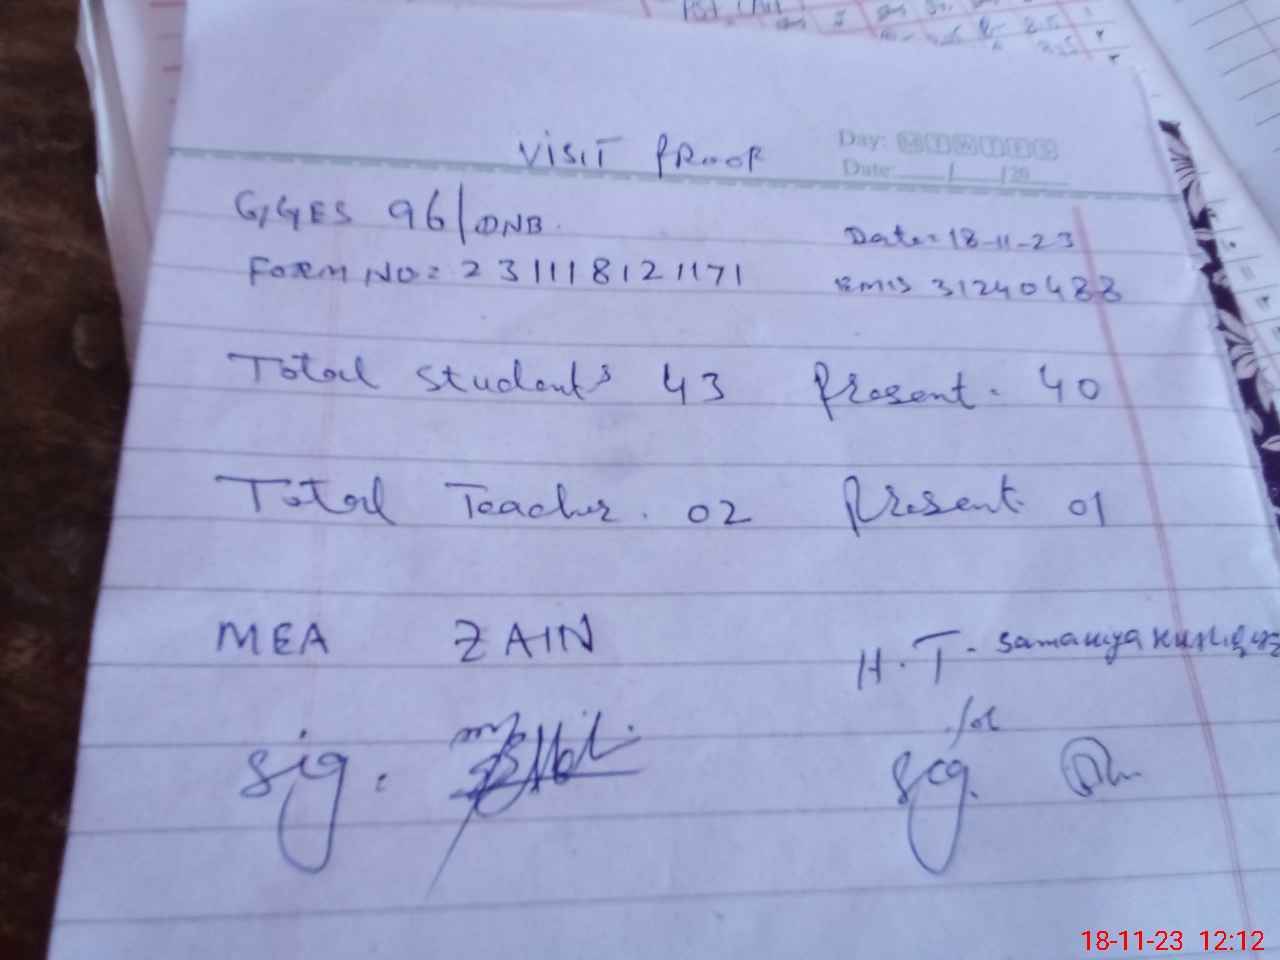 VISIT PROOF
Day:
Date: / /20
GGES 96/DNB.
Date= 18-11-23
FORM NO= 231118121171
EMIS 31240488
Total students 43 Present. 40
Total Teacher. 02 Present. 01
MEA ZAIN
H.T. Samaniya
Sig.
Sig.
18-11-23 12:12